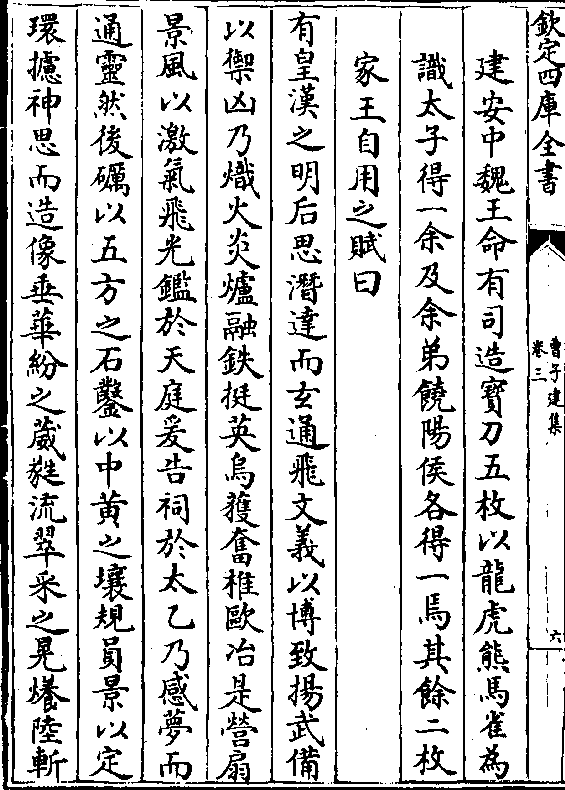 欽定四庫全書
曹子建集
卷三
六
建安中魏王命有司造寳刀五枚以龍虎熊馬雀為
識太子得一余及余弟饒陽侯各得一焉其餘二枚
家王自用之賦曰
有皇漢之明后思潛達而玄通飛文義以博致揚武備
以禦凶乃熾火炎爐融鉄挺英烏獲奮椎歐冶是營扇
景風以激氣飛光鑑於天庭爰告祠於太乙乃感夢而
通靈然後礪以五方之石鑿以中黄之壤規員景以定
環攄神思而造像垂華紛之葳蕤流翠采之晃𤒎陸斬